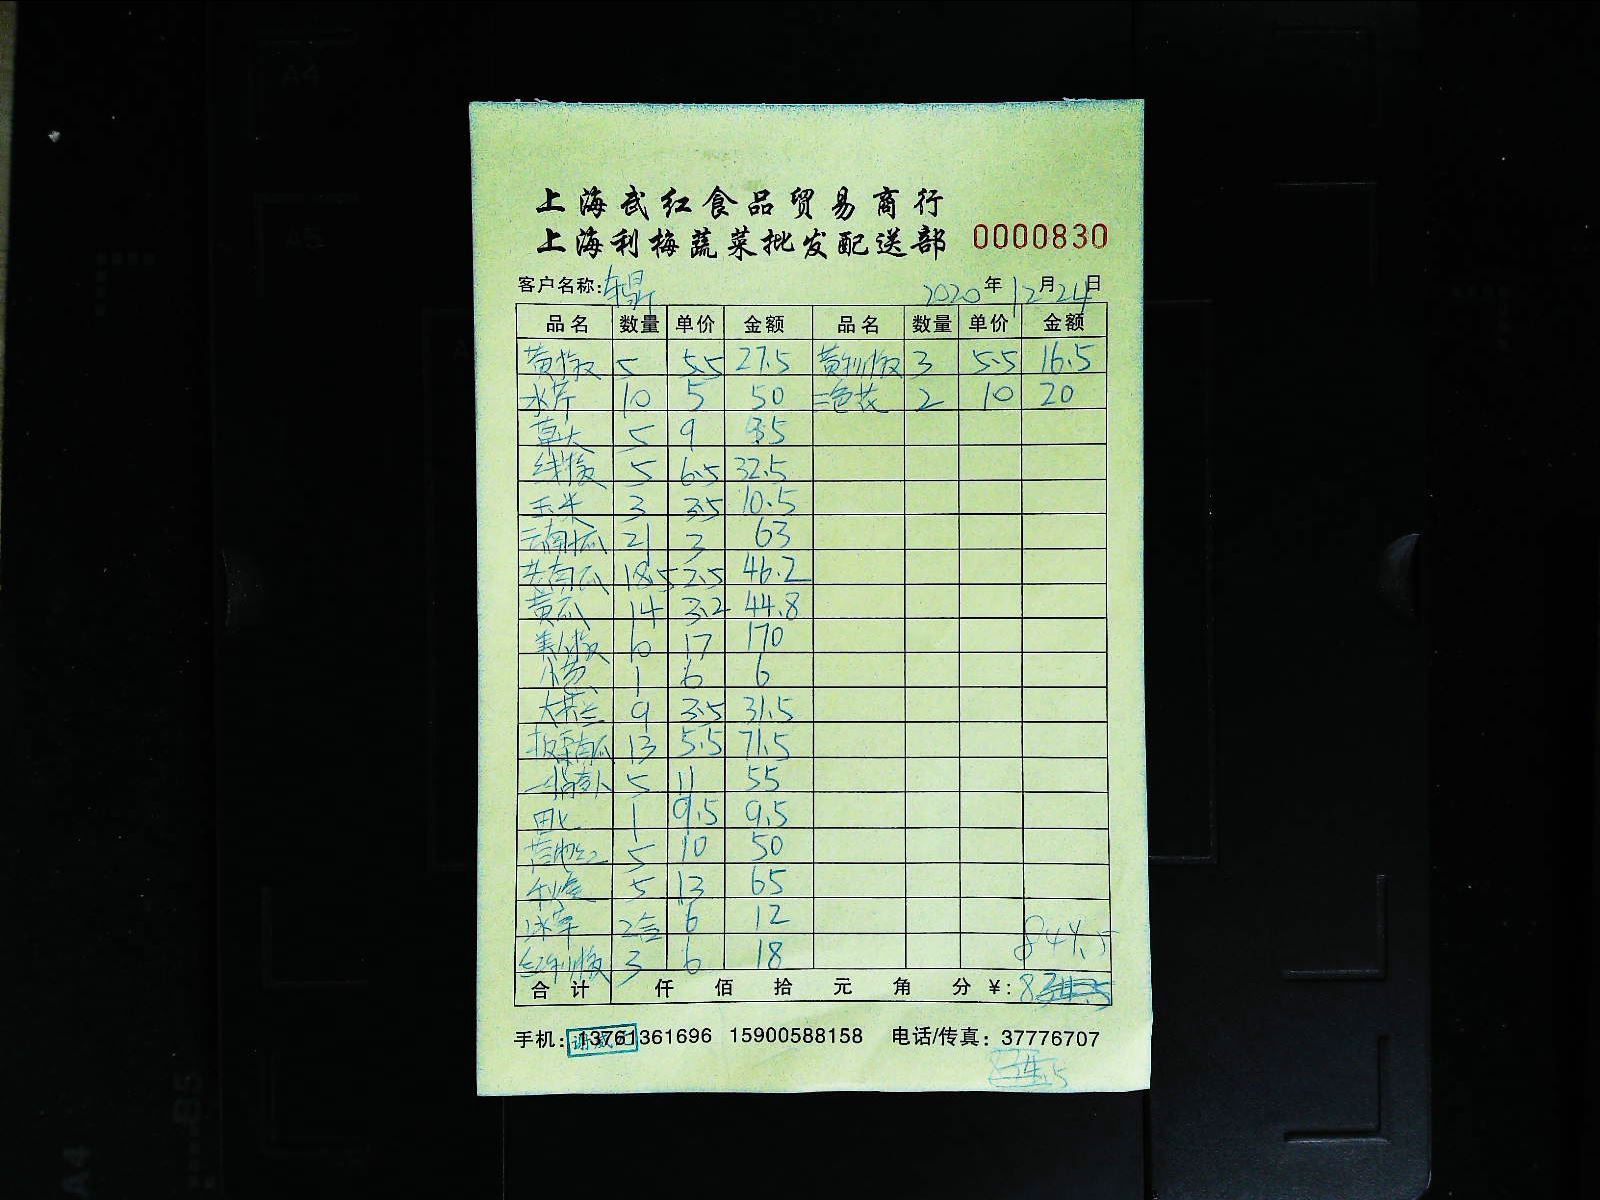 上海武红食品贸易商行
上海利梅蔬菜批发配送部 0000830
客户名称: 2020年12月24日
品名 数量 单价 金额 品名 数量 单价 金额
黄椒 5 5.5 27.5 黄利椒 3 5.5 16.5
冰芹 10 5 50 三色花 2 10 20
草大 5 9 45
线椒 5 6.5 32.5
玉米 3 3.5 10.5
云南小瓜 21 3 63
老南瓜 18.5 2.5 46.2
黄瓜 14 3.2 44.8
美人椒 10 17 170
小葱 1 6 6
大芥兰 9 3.5 31.5
板栗南瓜 13 5.5 71.5
5 11 55
田七 1 9.5 9.5
5 10 50
5 13 65
冰草 2盒 6 12
红利椒 3 6 18
844.5
合计 仟 佰 拾 元 角 分 ¥:
手机: 13761361696 15900588158 电话/传真: 37776707